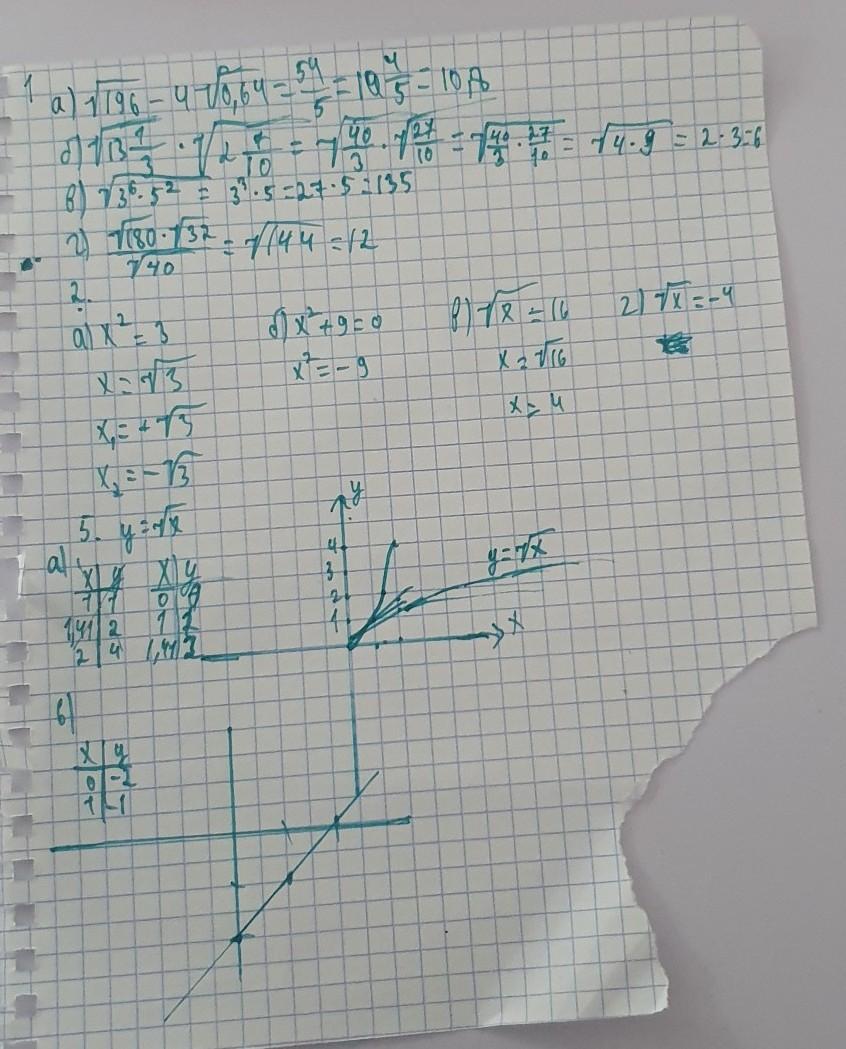 1 а) √196 - 4√0,64 = 54/5 = 10 4/5 = 10,8
б) √13 1/3 · √2 7/10 = √40/3 · √27/10 = √40/3 · 27/10 = √4·9 = 2·3=6
в) √3⁶·5² = 3³·5=27·5=135
г) √180·√32/√40 = √144 = 12
2.
а) x² = 3
x = √3
x₁ = +√3
x₂ = -√3
б) x² + 9 = 0
x² = -9
в) √x = 16
x = √16
x = 4
г) √x = -4
5. y = √x
а)
x | y
1 | 1
1,41 | 2
2 | 4
x | y
0 | 0
1 | 1
1,41
y
4
3
2
1
y=√x
x
б)
x | y
0 | -2
1 | -1